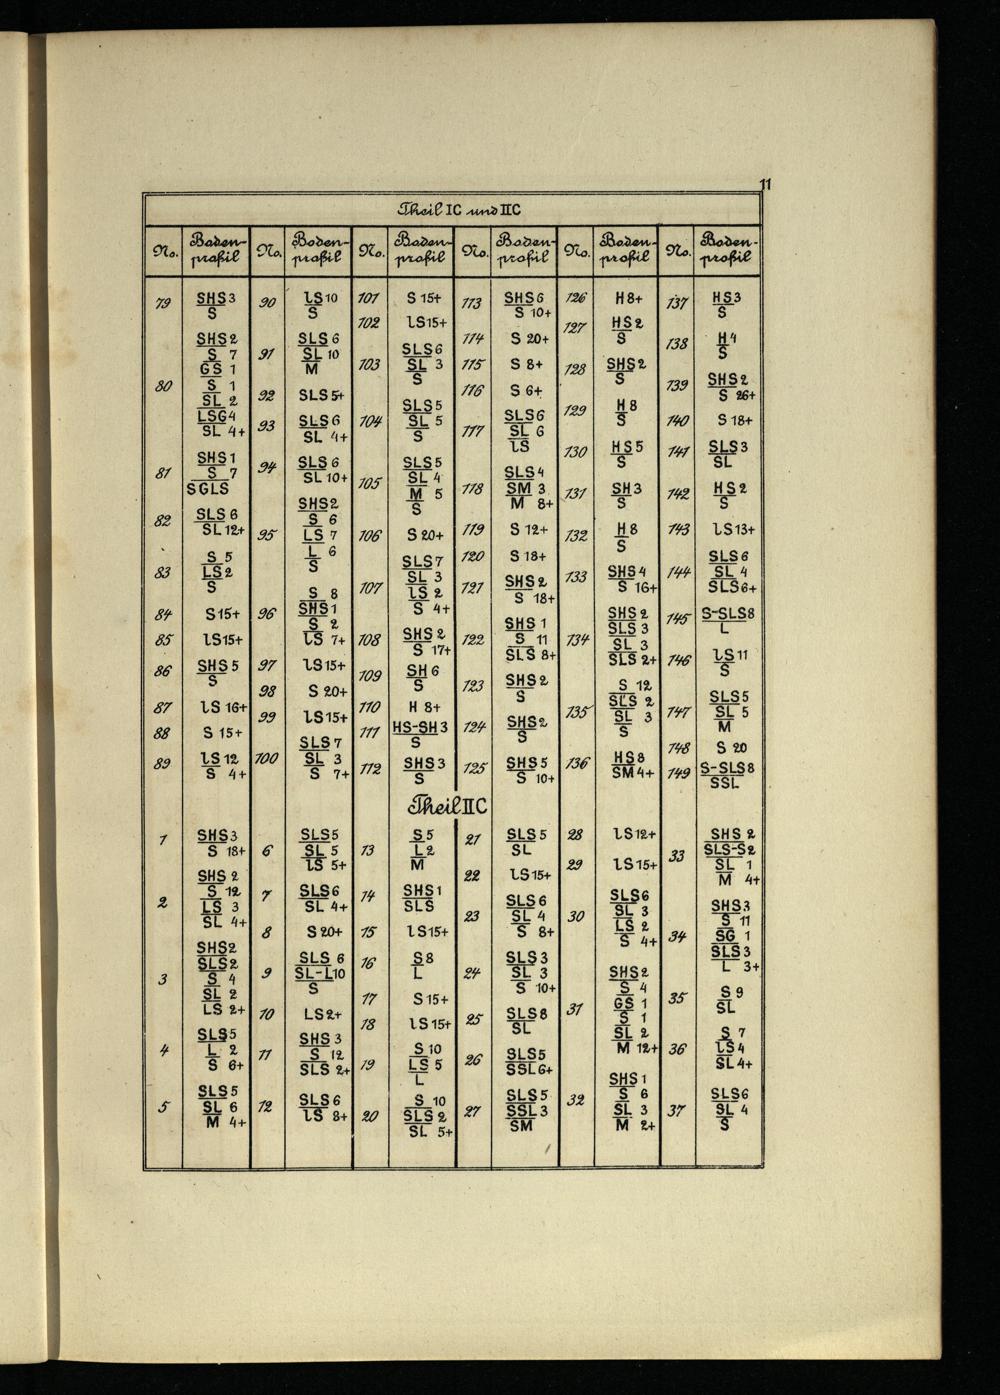 11
Theil IC und IIC
No. Boden-profil No. Boden-profil No. Boden-profil No. Boden-profil No. Boden-profil No. Boden-profil
79 SHS 3
S
80 SHS 2
S 7
GS 1
S 1
SL 2
LSG 4
SL 4+
81 SHS 1
S 7
SGLS
82 SLS 6
SL 12+
83 S 5
LS 2
S
84 S 15+
85 lS 15+
86 SHS 5
S
87 lS 16+
88 S 15+
89 lS 12
S 4+
90 lS 10
S
91 SLS 6
SL 10
M
92 SLS 5+
93 SLS 6
SL 4+
94 SLS 6
SL 10+
95 SHS 2
S 6
LS 7
L 6
S
96 S 8
SHS 1
S 2
lS 7+
97 lS 15+
98 S 20+
99 lS 15+
100 SLS 7
SL 3
S 7+
101 S 15+
102 lS 15+
103 SLS 6
SL 3
S
104 SLS 5
SL 5
S
105 SLS 5
SL 4
M 5
S
106 S 20+
107 SLS 7
SL 3
lS 2
S 4+
108 SHS 2
S 17+
109 SH 6
S
110 H 8+
111 HS-SH 3
S
112 SHS 3
S
113 SHS 6
S 10+
114 S 20+
115 S 8+
116 S 6+
117 SLS 6
SL 6
lS
118 SLS 4
SM 3
M 8+
119 S 12+
120 S 18+
121 SHS 2
S 18+
122 SHS 1
S 11
SLS 8+
123 SHS 2
S
124 SHS 2
S
125 SHS 5
S 10+
126 H 8+
127 HS 2
S
128 SHS 2
S
129 H 8
S
130 HS 5
S
131 SH 3
S
132 H 8
S
133 SHS 4
S 16+
134 SHS 2
SLS 3
SL 3
SLS 2+
135 S 12
SLS 2
SL 3
S
136 HS 8
SM 4+
137 HS 3
S
138 H 4
S
139 SHS 2
S 26+
140 S 18+
141 SLS 3
SL
142 HS 2
S
143 lS 13+
144 SLS 6
SL 4
SLS 6+
145 S-SLS 8
L
146 lS 11
S
147 SLS 5
SL 5
M
148 S 20
149 S-SLS 8
SSL
Theil IIC
1 SHS 3
S 18+
2 SHS 2
S 12
LS 3
SL 4+
3 SHS 2
SLS 2
S 4
SL 2
LS 2+
4 SLS 5
L 2
S 6+
5 SLS 5
SL 6
M 4+
6 SLS 5
SL 5
lS 5+
7 SLS 6
SL 4+
8 S 20+
9 SLS 6
SL-L 10
S
10 LS 2+
11 SHS 3
S 12
SLS 2+
12 SLS 6
lS 8+
13 S 5
L 2
M
14 SHS 1
SLS
15 lS 15+
16 S 8
L
17 S 15+
18 lS 15+
19 S 10
LS 5
L
20 S 10
SLS 2
SL 5+
21 SLS 5
SL
22 lS 15+
23 SLS 6
SL 4
S 8+
24 SLS 3
SL 3
S 10+
25 SLS 8
SL
26 SLS 5
SSL 6+
27 SLS 5
SSL 3
SM
28 lS 12+
29 lS 15+
30 SLS 6
SL 3
LS 2
S 4+
31 SHS 2
S 4
GS 1
S 1
SL 2
M 12+
32 SHS 1
S 6
SL 3
M 2+
33 SHS 2
SLS-S 2
SL 1
M 4+
34 SHS 3
S 11
SG 1
SLS 3
L 3+
35 S 9
SL
36 S 7
lS 4
SL 4+
37 SLS 6
SL 4
S